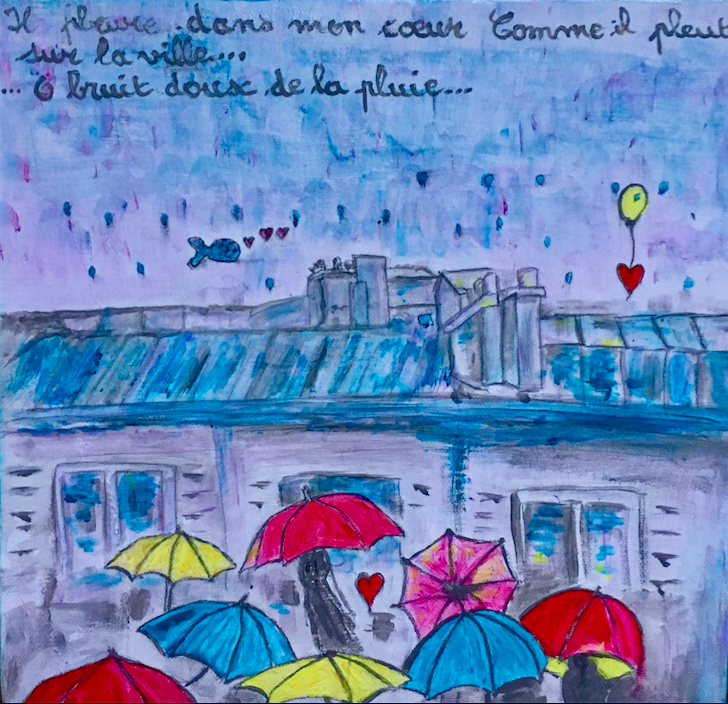 Il pleure dans mon cœur Comme il pleut
sur la ville...
... Ô bruit doux de la pluie...